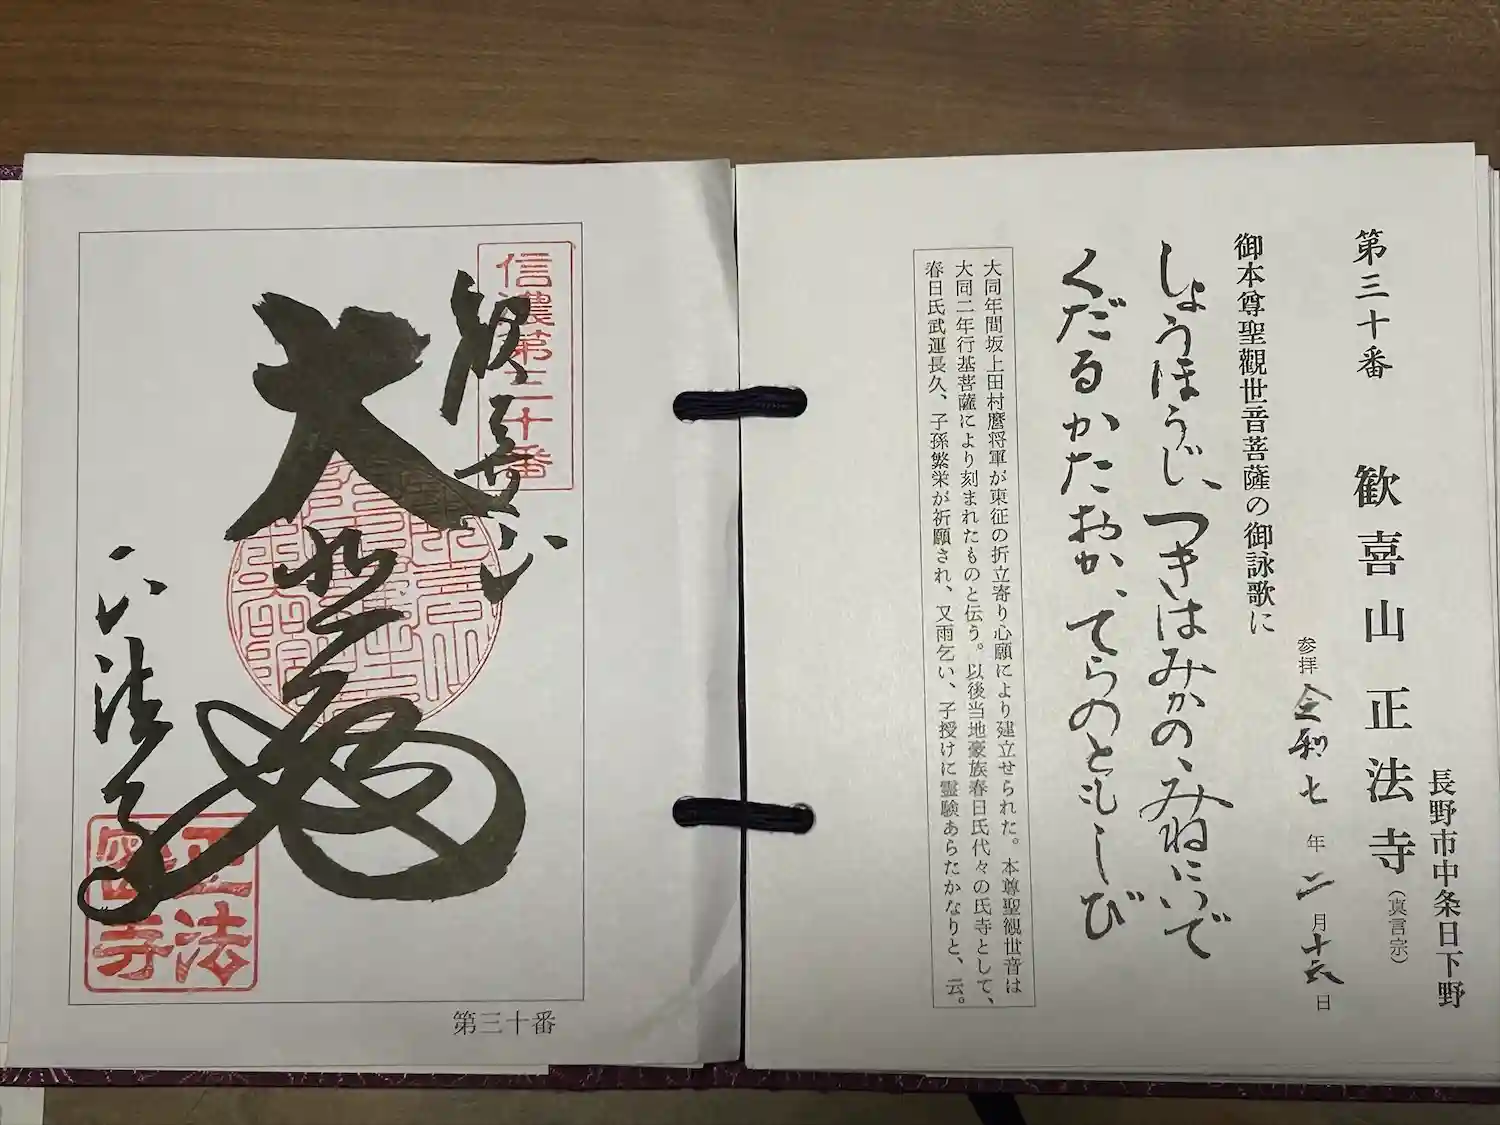 長野市中条日下野
第三十番 歓喜山正法寺（真言宗）
参拝 令和七年二月十六日
御本尊聖觀世音菩薩の御詠歌に
しょうほうじ、つきはみかの、みねにいで
くだるかたおか、てらのともしび
大同年間坂上田村麿将軍が東征の折立寄り心願により建立せられた。本尊聖観世音は
大同二年行基菩薩により刻まれたものと伝う。以後当地豪族春日氏代々の氏寺として、
春日氏武運長久、子孫繁栄が祈願され、又雨乞い、子授けに霊験あらたかなりと、云。
信濃第三十番
歓喜山
大悲殿
正法寺
正法寺
第三十番